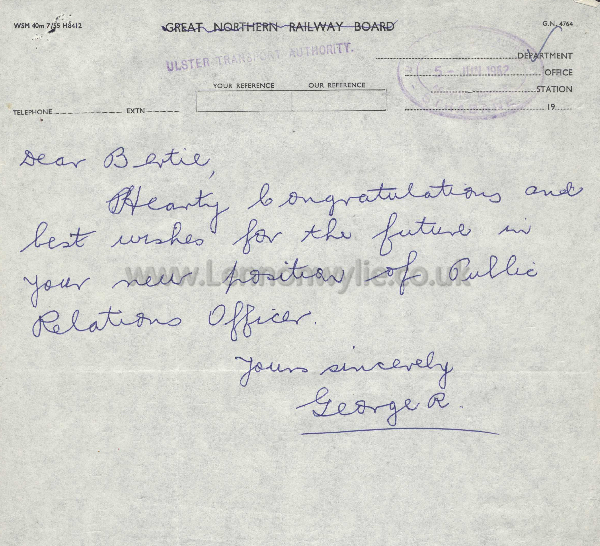 WSM 40m 7/55 H8412
GREAT NORTHERN RAILWAY BOARD
G.N. 4764
ULSTER TRANSPORT AUTHORITY.
DEPARTMENT
5 JUN 1962
OFFICE
YOUR REFERENCE OUR REFERENCE
STATION
TELEPHONE EXTN 19
Dear Bertie,
Hearty Congratulations and
best wishes for the future in
your new position of Public
Relations Officer.
Yours sincerely
George R.
www.Lennonwylie.co.uk